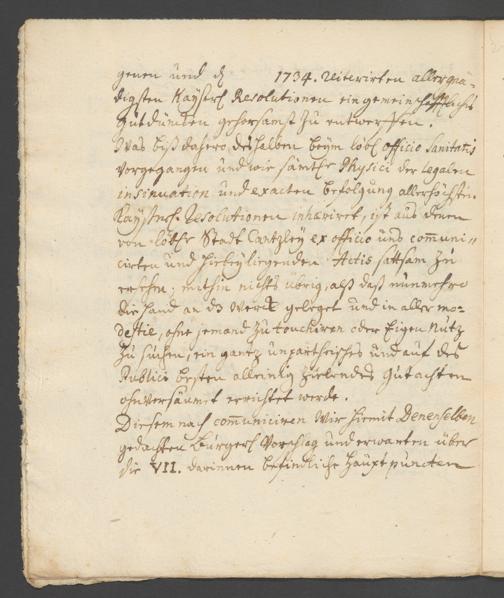 genen und d 1734. reiterirten allergnä-
digsten Kayserl Resolutionen ein gemeinschafftliches
Gutduncken gehorsamst zu entwerffen.
Was bißdahero deßhalben beym löbl officio Sanitatis
vorgegangen und wie sämtl Physici der Legalen
insinuation und exacten befolgung allerhöchster
Kayserl Resolutionen inhærirt, ist aus denen
von löbl Stadt Cantzley ex officio uns com̄uni-
cirten und hiebey liegenden Actis sattsam zu
ersehen; mithin nichts übrig, alß daß nunmehro
die Hand an ds Werck geleget und in aller mo-
destie, ohne jemand zu touchiren oder Eigen Nutz
zu suchen, ein gantz unpartheyisches und auf des
Publici besten alleinig zielendes Gutachten
ohnversäumt errichtet werde.
Diesem nach com̄uniciren Wir hiemit Denenselben
gedachten Burgerl Vorschlag und erwarten über
die VII. darinnen befindliche Haupt puncten